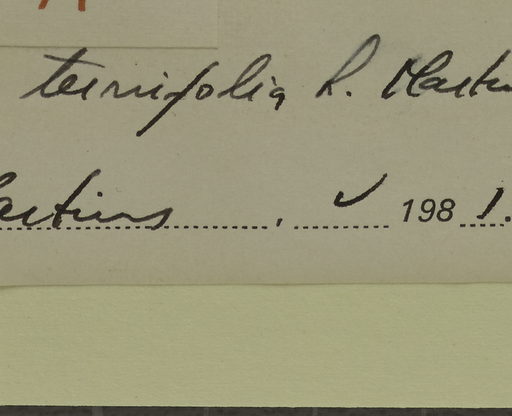 ternifolia R. Martin
artins , V 1981.